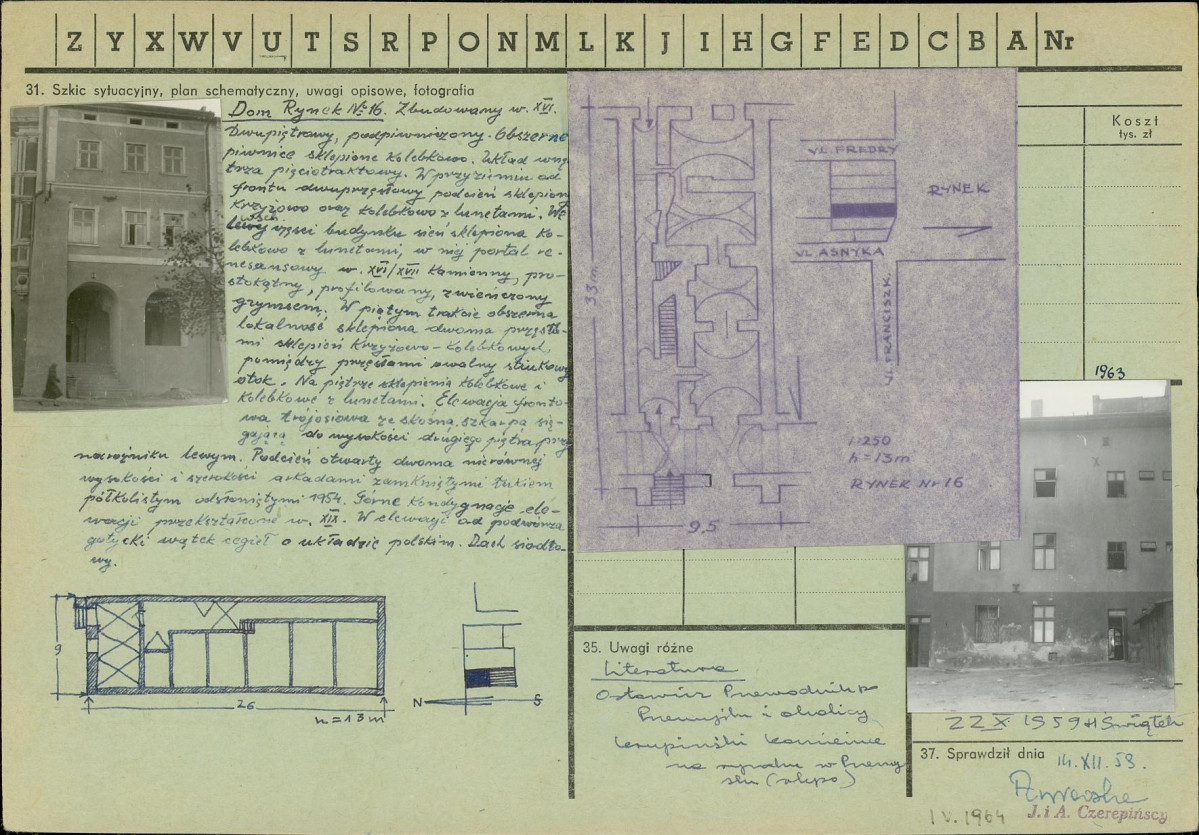 Z Y X W V U T S R P O N M L K J I H G F E D C B A Nr
31. Szkic sytuacyjny, plan schematyczny, uwagi opisowe, fotografia
Dom Rynek № 16. Zbudowany w. XVI.
Dwupiętrowy, podpiwniczony. Obszerne
piwnice sklepione kolebkowo. Układ wnę-
trza pięciotraktowy. W przyziemiu od
frontu dwuprzęsłowy podcień sklepiony
krzyżowo oraz kolebkowo z lunetami. We
lewej części budynku sień sklepiona ko-
lebkowo z lunetami, w niej portal re-
nesansowy w. XVI/XVII kamienny, pro-
stokątny, profilowany, zwieńczony
gzymsem. W piątym trakcie obszerna
lokalność sklepiona dwoma przęsła-
mi sklepień krzyżowo-kolebkowych,
pomiędzy przęsłami owalny stiukowy
otok. Na piętrze sklepienia kolebkowe i
kolebkowe z lunetami. Elewacja fronto-
wa trójosiowa ze skośną szkarpą się-
gającą do wysokości drugiego piętra przy
narożniku lewym. Podcień otwarty dwoma nierównej
wysokości i szerokości arkadami zamkniętymi łukiem
półkolistym odsłoniętymi 1954. Górne kondygnacje ele-
wacji przekształcone w. XIX. W elewacji od podwórza
gotycki wątek cegieł o układzie polskim. Dach siodło-
wy.
9
26
h = 13 m
N S
33 m
9,5
UL. FREDRY
RYNEK
UL. ASNYKA
UL. FRANCISZK.
1:250
h = 13 m
RYNEK Nr 16
Koszt
tys. zł
1963
35. Uwagi różne
Literatura
Orłowicz Przewodnik po
Przemyślu i okolicy
Krupiński kamienice
na rynku w Przemy-
ślu
22 X 1959 H Świątek
37. Sprawdził dnia 14.XII.59.
IV. 1964
J. i A. Czerepińscy